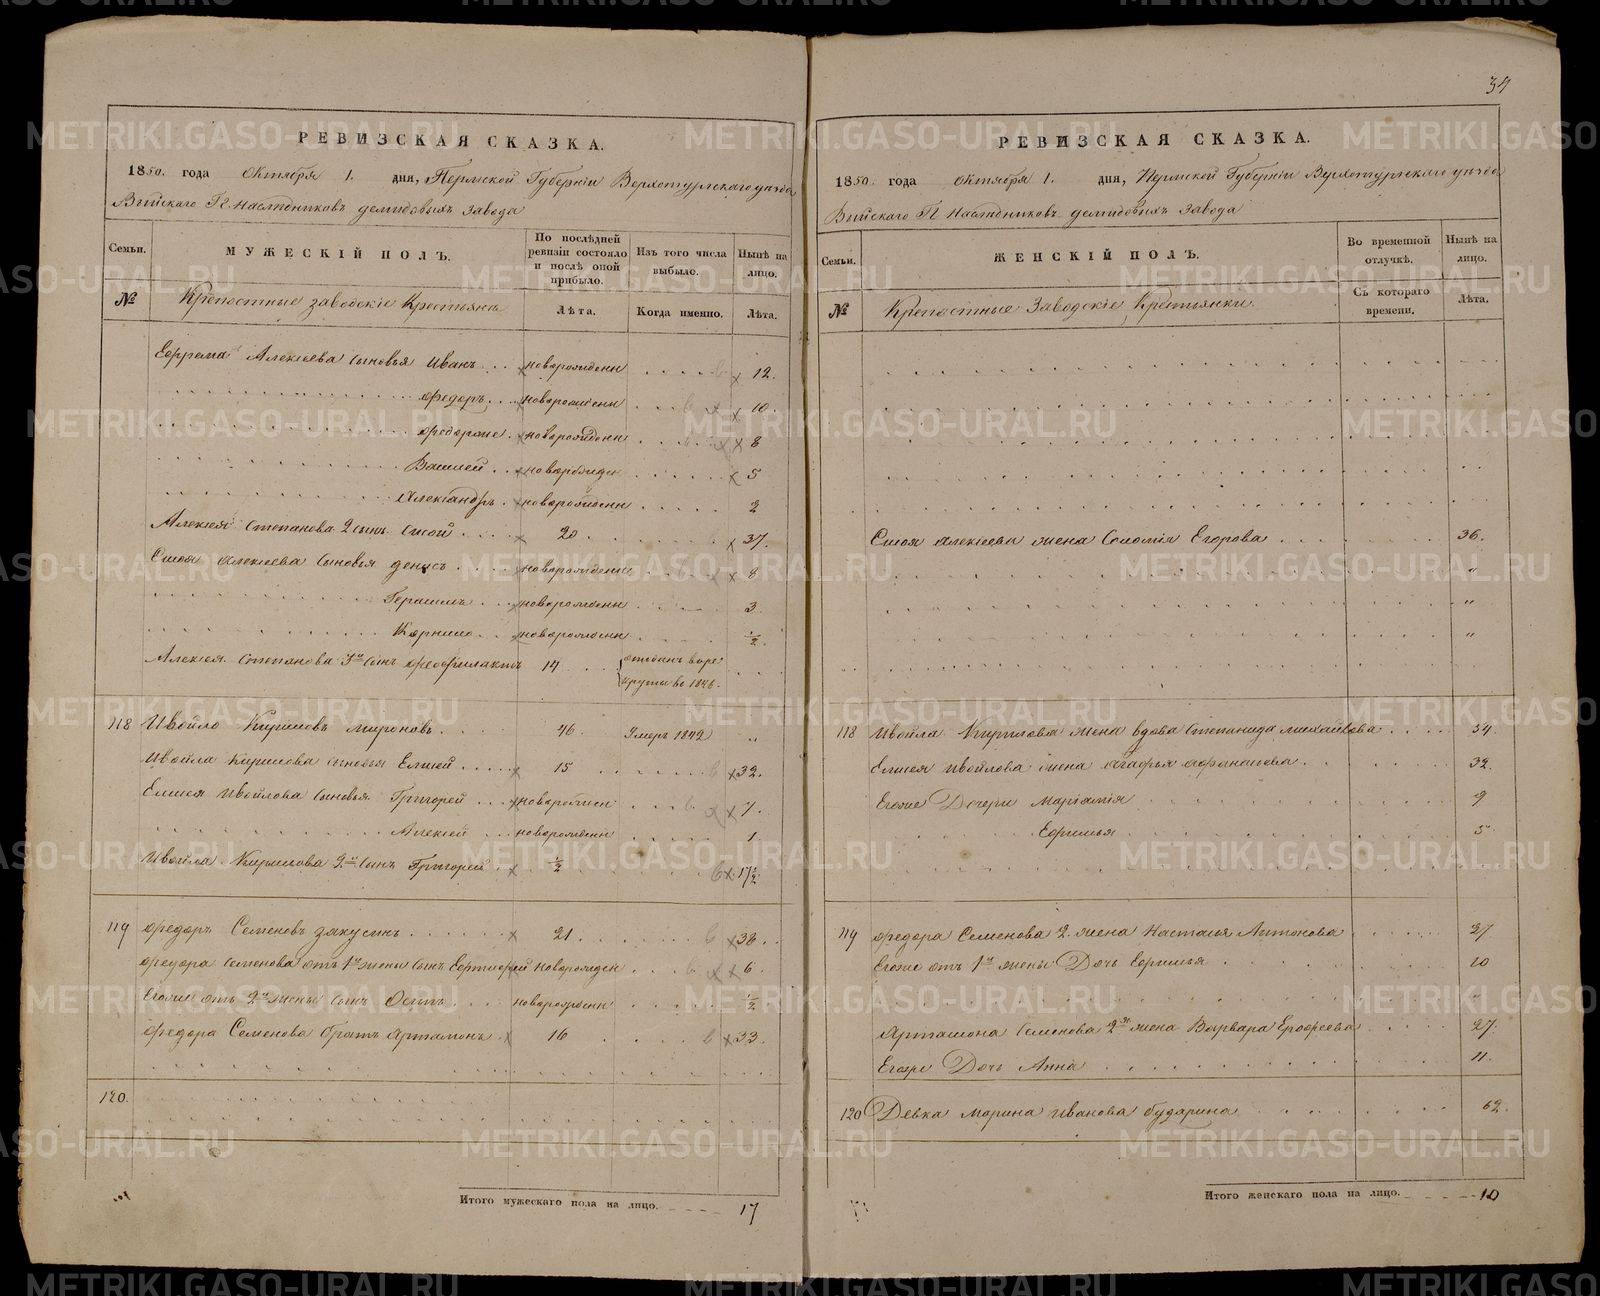 34
РЕВИЗСКАЯ СКАЗКА.
1850. года Октября 1. дня, Пермской Губерніи Верхотурскаго уѣзда
Выйскаго Г. Наслѣдниковъ демидовыхъ завода
Семьи.
МУЖЕСКІЙ ПОЛЪ.
По послѣдней ревизіи состояло и послѣ оной прибыло.
Изъ того числа выбыло.
Нынѣ на лицо.
№
Крѣпостные заводскіе Крестьяне
Лѣта.
Когда именно.
Лѣта.
Ефрема Алексѣева сыновья Иванъ новорожденн 12.
Федоръ новорожденн 10.
новорожденн 8
Василей новорожден 5
Александръ новорожденн 2
Алексѣя Степанова 2 сынъ 20 37.
Алексѣева сыновья денисъ новорожденн 8
Герасимъ новорожденн 3.
Корнило новорожденн ½.
Алексѣя Степанова 3й сынъ Феофилактъ 14 отданъ в ре
круты во 1846.
118 Ивойло Кириловъ Мироновъ 46. Умеръ 1842 „
Ивойла Кирилова сыновья Елисей 15 32.
Елисея Ивойлова сыновья Григорей новорожден 7.
Алексей новорожденн 1
Ивойла Кирилова 2й сынъ Григорей ½ 17½
119 Федоръ Семеновъ закусинъ 21. 38.
Федора Семенова отъ 1й жены сынъ новорожден 6.
Егоже отъ 2й жены сынъ Осипъ новорожденн ½
Федора Семенова братъ Артамонъ 16 33.
120.
Итого мужескаго пола на лицо. 17
РЕВИЗСКАЯ СКАЗКА.
1850. года Октября 1. дня, Пермской Губерніи Верхотурскаго уѣзда
Выйскаго Г. Наслѣдниковъ демидовыхъ завода
Семьи.
ЖЕНСКІЙ ПОЛЪ.
Во временной отлучкѣ.
Нынѣ на лицо.
№
Крѣпостные Заводскіе Крестьянки
Съ котораго времени.
Лѣта.
Алексѣева жена Соломія Егорова 36.
„
„
„
118 Ивойла Кирилова жена вдова Степанида михайлова 54.
Елисея Ивойлова жена Агафья Афонасьева 32.
Егоже Дочери Маріамія 9
Ефимья 5.
119 Федора Семенова 2 жена Настасья Антонова 37
Егоже отъ 1й жены Дочь Ефимья 10
Артамона Семенова 2я жена Варвара Ерофеева 27.
Егоже Дочь Анна 11.
120 Девка Марина Иванова бударина 62.
Итого женскаго пола на лицо. 10
METRIKI.GASO-URAL.RU